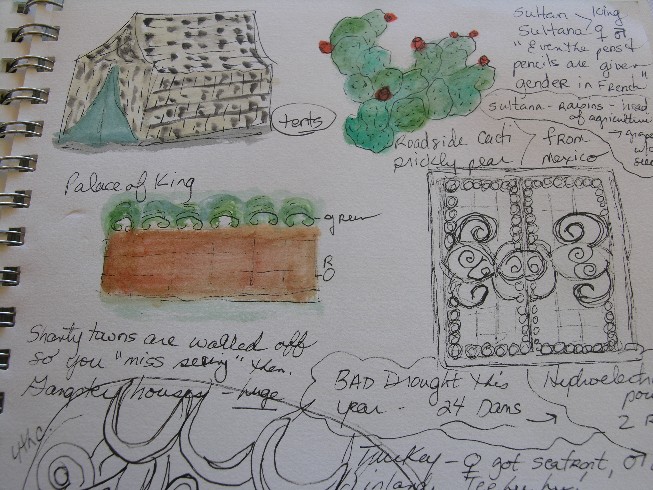 Sultan - King
Sultana ♀ ♂
"Even the pens &
pencils are given
gender in French"
sultana - raisins - head
of agriculture
→ grape
tents
Roadside Cacti
prickly pear
from
mexico
Palace of King
green
R
O
Shanty towns are walled off
so you "miss seeing" them.
Gangster houses - huge
BAD Drought this
year - 24 Dams →
Hydroelectri
pow
2 R
Turkey - ♀ got seafront, ♂
inland.